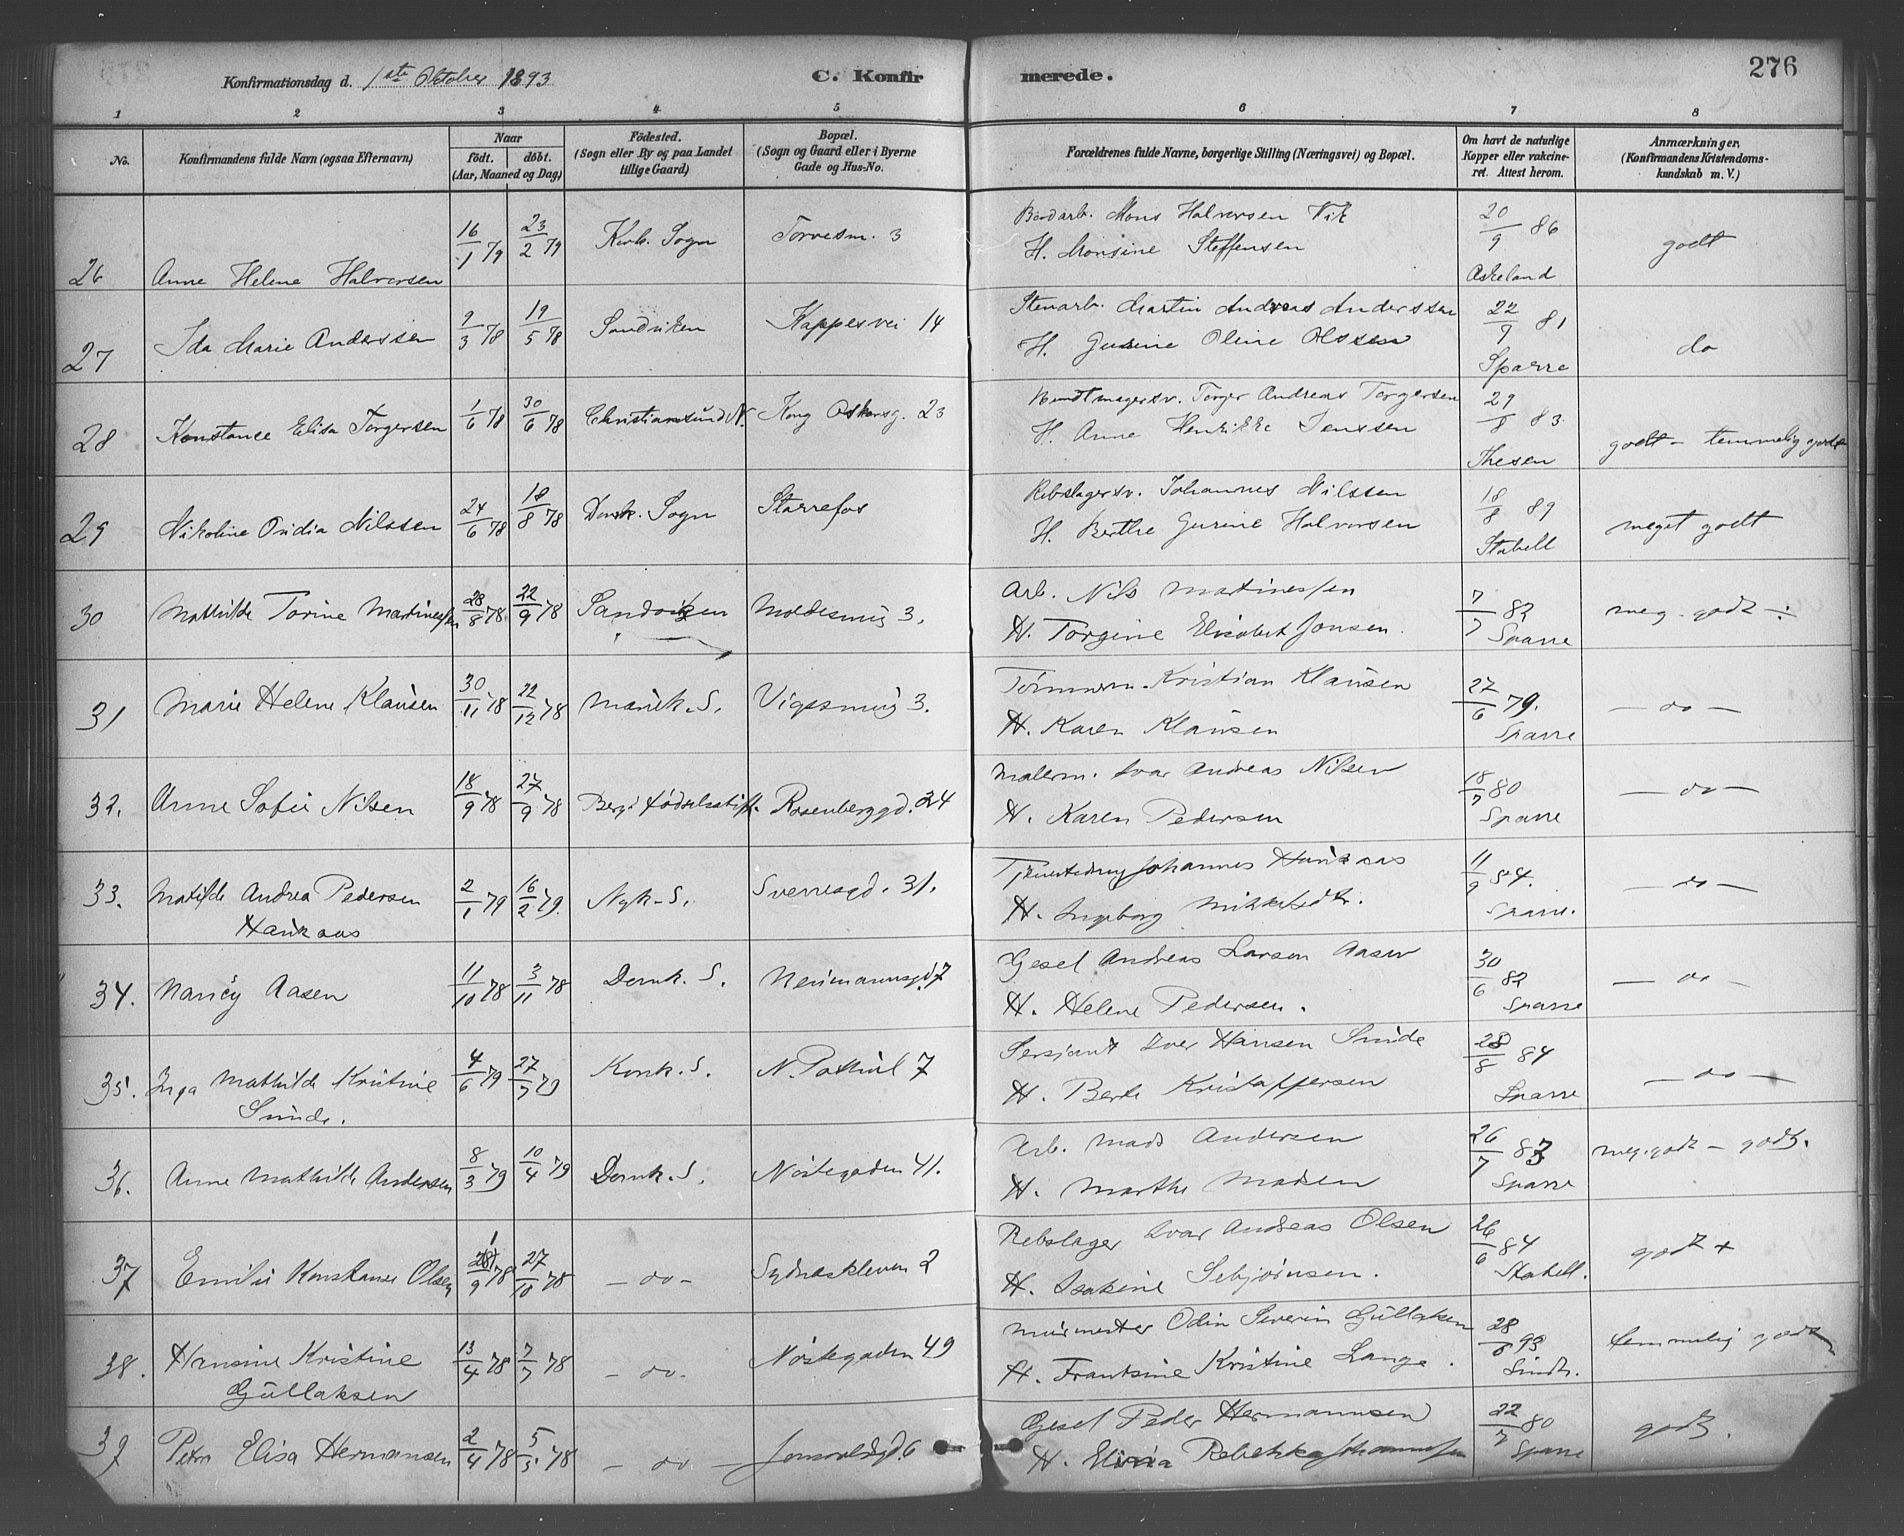 276
Konfirmationsdag d. 1ste Oktober 1893 C. Konfirmerede.
1 2 3 4 5 6 7 8
No. Konfirmandens fulde Navn (ogsaa Efternavn) Naar født. døbt. (Aar, Maaned og Dag) Fødested. (Sogn eller By og paa Landet tillige Gaard) Bopæl. (Sogn og Gaard eller i Byerne Gade og Hus-No. Forældrenes fulde Navne, borgerlige Stilling (Næringsvei) og Bopæl. Om havt de naturlige Kopper eller vakcineret. Attest herom. Anmærkninger. (Konfirmandens Kristendomskundskab m. V.)
26 Anne Helene Halvorsen 16/1 79 23/2 79 Kork. Sogn Torvesm. 3 Bordarb. Mons Halvorsen Vik 20/9 86 godt
H. Monsine Steffensen Askeland
27 Ida Marie Anderssen 9/3 78 19/5 78 Sandviken Kappesvei 14 Stenarb. Martin Andreas Anderssen 22/9 81 do
H. Gurine Oline Olssen Sparre
28 Konstance Elisa Torgersen 1/6 78 30/6 78 Christiansund N. Kong Oskarsg. 23 Bundtmagersv. Torger Andreas Torgersen 29/8 83 godt - temmelig godt
H. Anne Henrikke Jenssen Thesen
29 Nikoline Ovidia Nilssen 24/6 78 18/8 78 Domk. Sogn Starrefos Rebslagersv. Johannes Nilssen 18/8 89 meget godt
H. Berthe Gurine Halvorsen Stabell
30 Mathilde Torine Martinessen 28/8 78 22/9 78 Sandviken Moldesmug 3. Arb. Nils Martinessen 7/7 82 meg. godt ÷
H. Torgine Elisabet Jonsen. Sparre
31 Marie Helene Klausen 30/11 78 22/12 78 Mariek. S. Vigssmug 3. Tømmerm. Kristian Klausen 27/6 79. - do -
H. Karen Klausen Sparre
32. Anne Sofie Nilsen 18/9 78 27/9 78 Berg. Fødselsstift. Rosenberggd. 34 Malerm. Ivar Andreas Nilsen 18/7 80 - do -
H. Karen Pedersen Sparre
33. Matilde Andrea Pedersen 2/1 79 16/2 79. Nyk. S. Sverresgd. 31. Johannes Haukaas 11/9 84. - do -
Haukaas H. Ingeborg Mikkelsdtr. Sparre.
34. Nancy Aasen 11/10 78 3/11 78 Domk. S. Neumannsgd. 7 Gesel Andreas Larsen Aasen 30/6 82 - do -
H. Helene Pedersen. Sparre
35. Inga Mathilde Kristine 4/6 79 27/7 79 Kork. S. N. 7 Sersjant Iver Hansen Sunde 28/8 84 - do -
Sunde. H. Berte Kristoffersen Sparre
36. Anne Mathilde Andersen 8/3 79 10/4 79 Domk. S. Nøstegaden 41. Arb. Mads Andersen 26/7 83 meg. godt - godt.
H. Marthe Madsen Sparre
37 Emilie Konstanse Olsen 28/9 78 27/10 78 - do - Sydneskleven 2 Rebslager Ivar Andreas Olsen 26/6 84 godt +
H. Isakine Sebjørnsen. Stabell.
38. Hansine Kristine 13/4 78 7/7 78 - do. Nøstegaden 49 Murmester Odin Severin Gullaksen 28/8 93 temmelig godt
Gullaksen H. Frantsine Kristine Lange. Lindtr.
39 Petra Elisa Hermansen 2/4 78 5/5 78 - do - Jonsvoldsgd. 6 Gesel Peder Hermannsen 22/7 80 godt.
H. Rebekka Johannessen Sparre